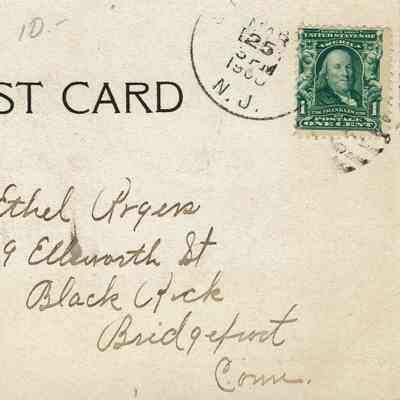 10-
MAR
25
5 PM
N. J.
UNITED STATES OF
AMERICA
1 FRANKLIN 1
POSTAGE
ONE CENT
ST CARD
Ethel Rogers
9 Ellsworth St
Black Rock
Bridgeport
Conn.